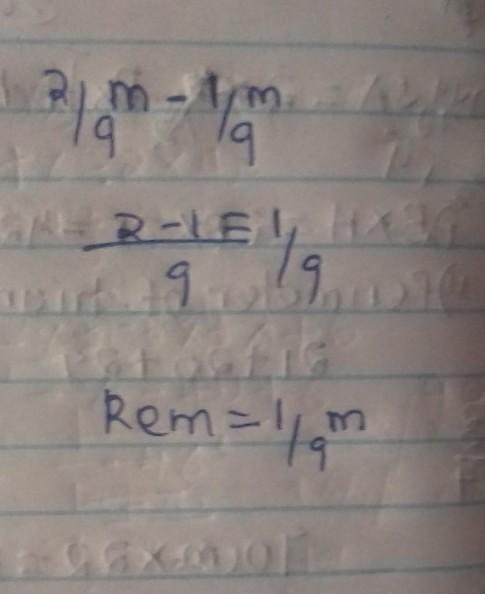 2/9 m - 1/9 m
2 - 1 = 1/9
9
Rem = 1/9 m